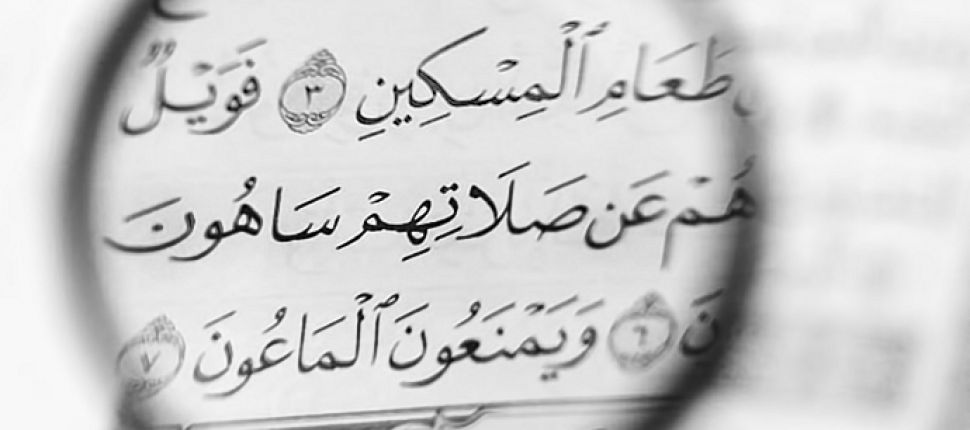 طَعَامِ ٱلْمِسْكِينِ ٣ فَوَيْلٌ
هُمْ عَن صَلَاتِهِمْ سَاهُونَ
نَ ٦ وَيَمْنَعُونَ ٱلْمَاعُونَ ٧